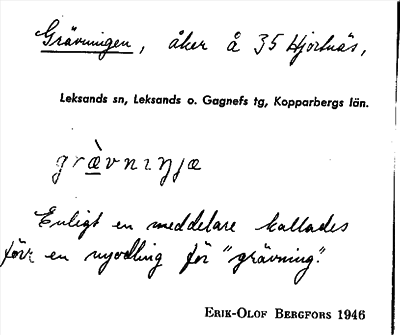 Grävningen, åker å 35 Hjortnäs,
Leksands sn, Leksands o. Gagnefs tg, Kopparbergs län.
græ̀vnıŋɟæ
Enligt en meddelare kallades
förr en nyodling för "grävning".
ERIK-OLOF BERGFORS 1946